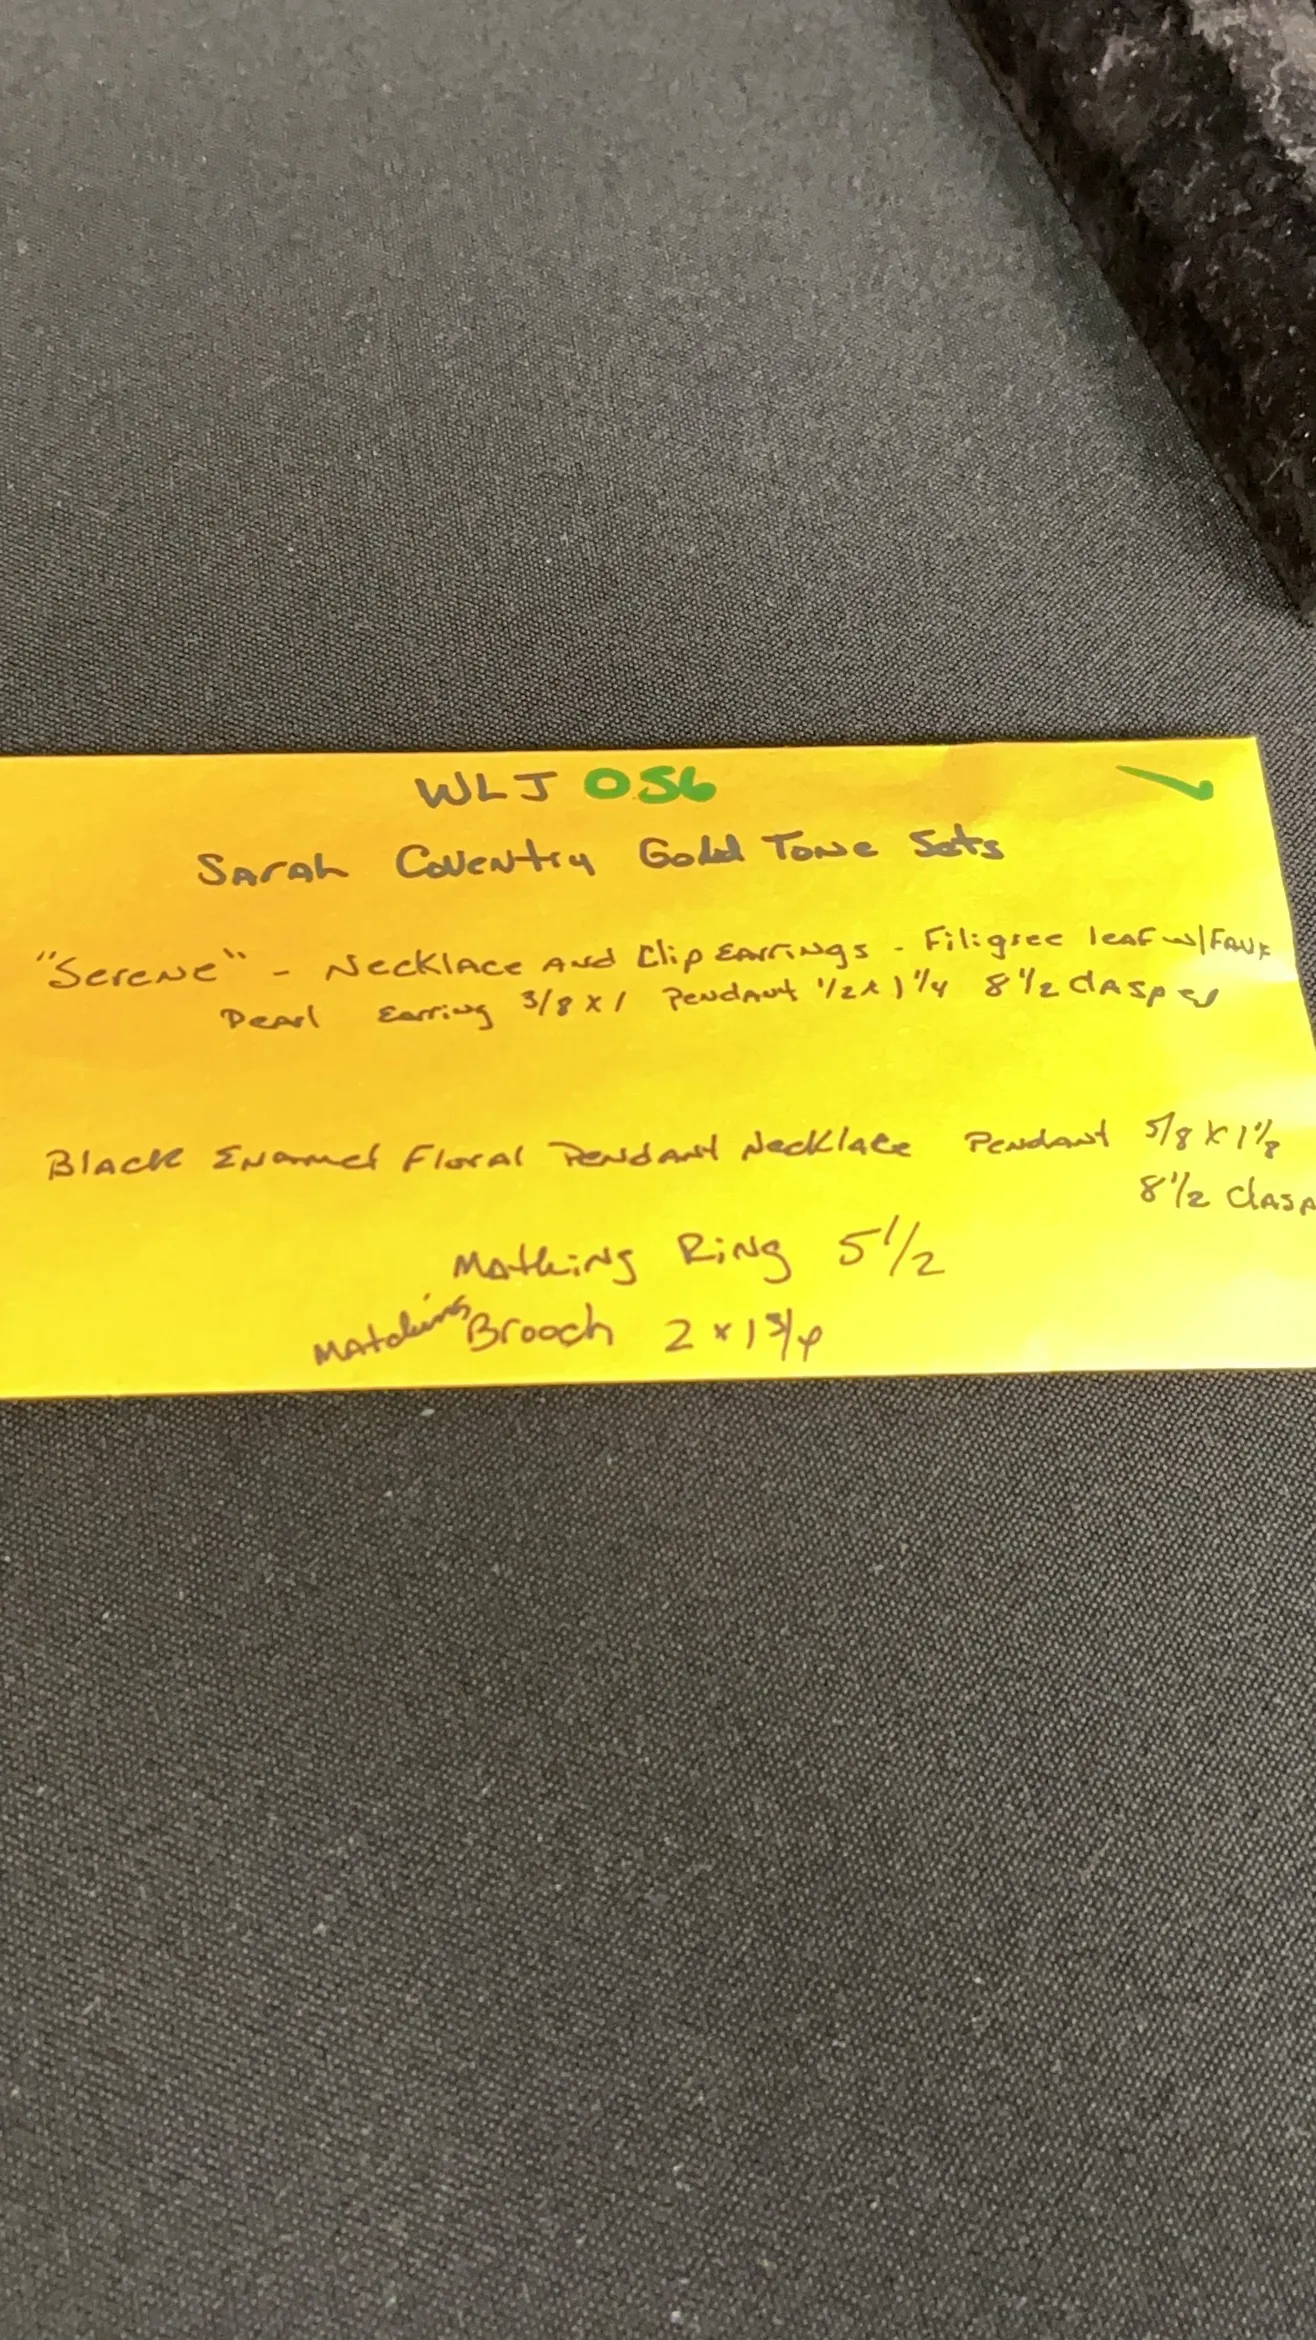 WLJ 056
Sarah Coventry Gold Tone Sets
"Serene" - Necklace and Clip Earrings - Filigree leaf w/Faux
Pearl Earring 3/8 x 1 Pendant 1/2 x 1 1/4 8 1/2 clasped
Black Enamel Floral Pendant Necklace Pendant 5/8 x 1 1/8
8 1/2 clasp
Mathing Ring 5 1/2
Matching Brooch 2 x 1 3/4